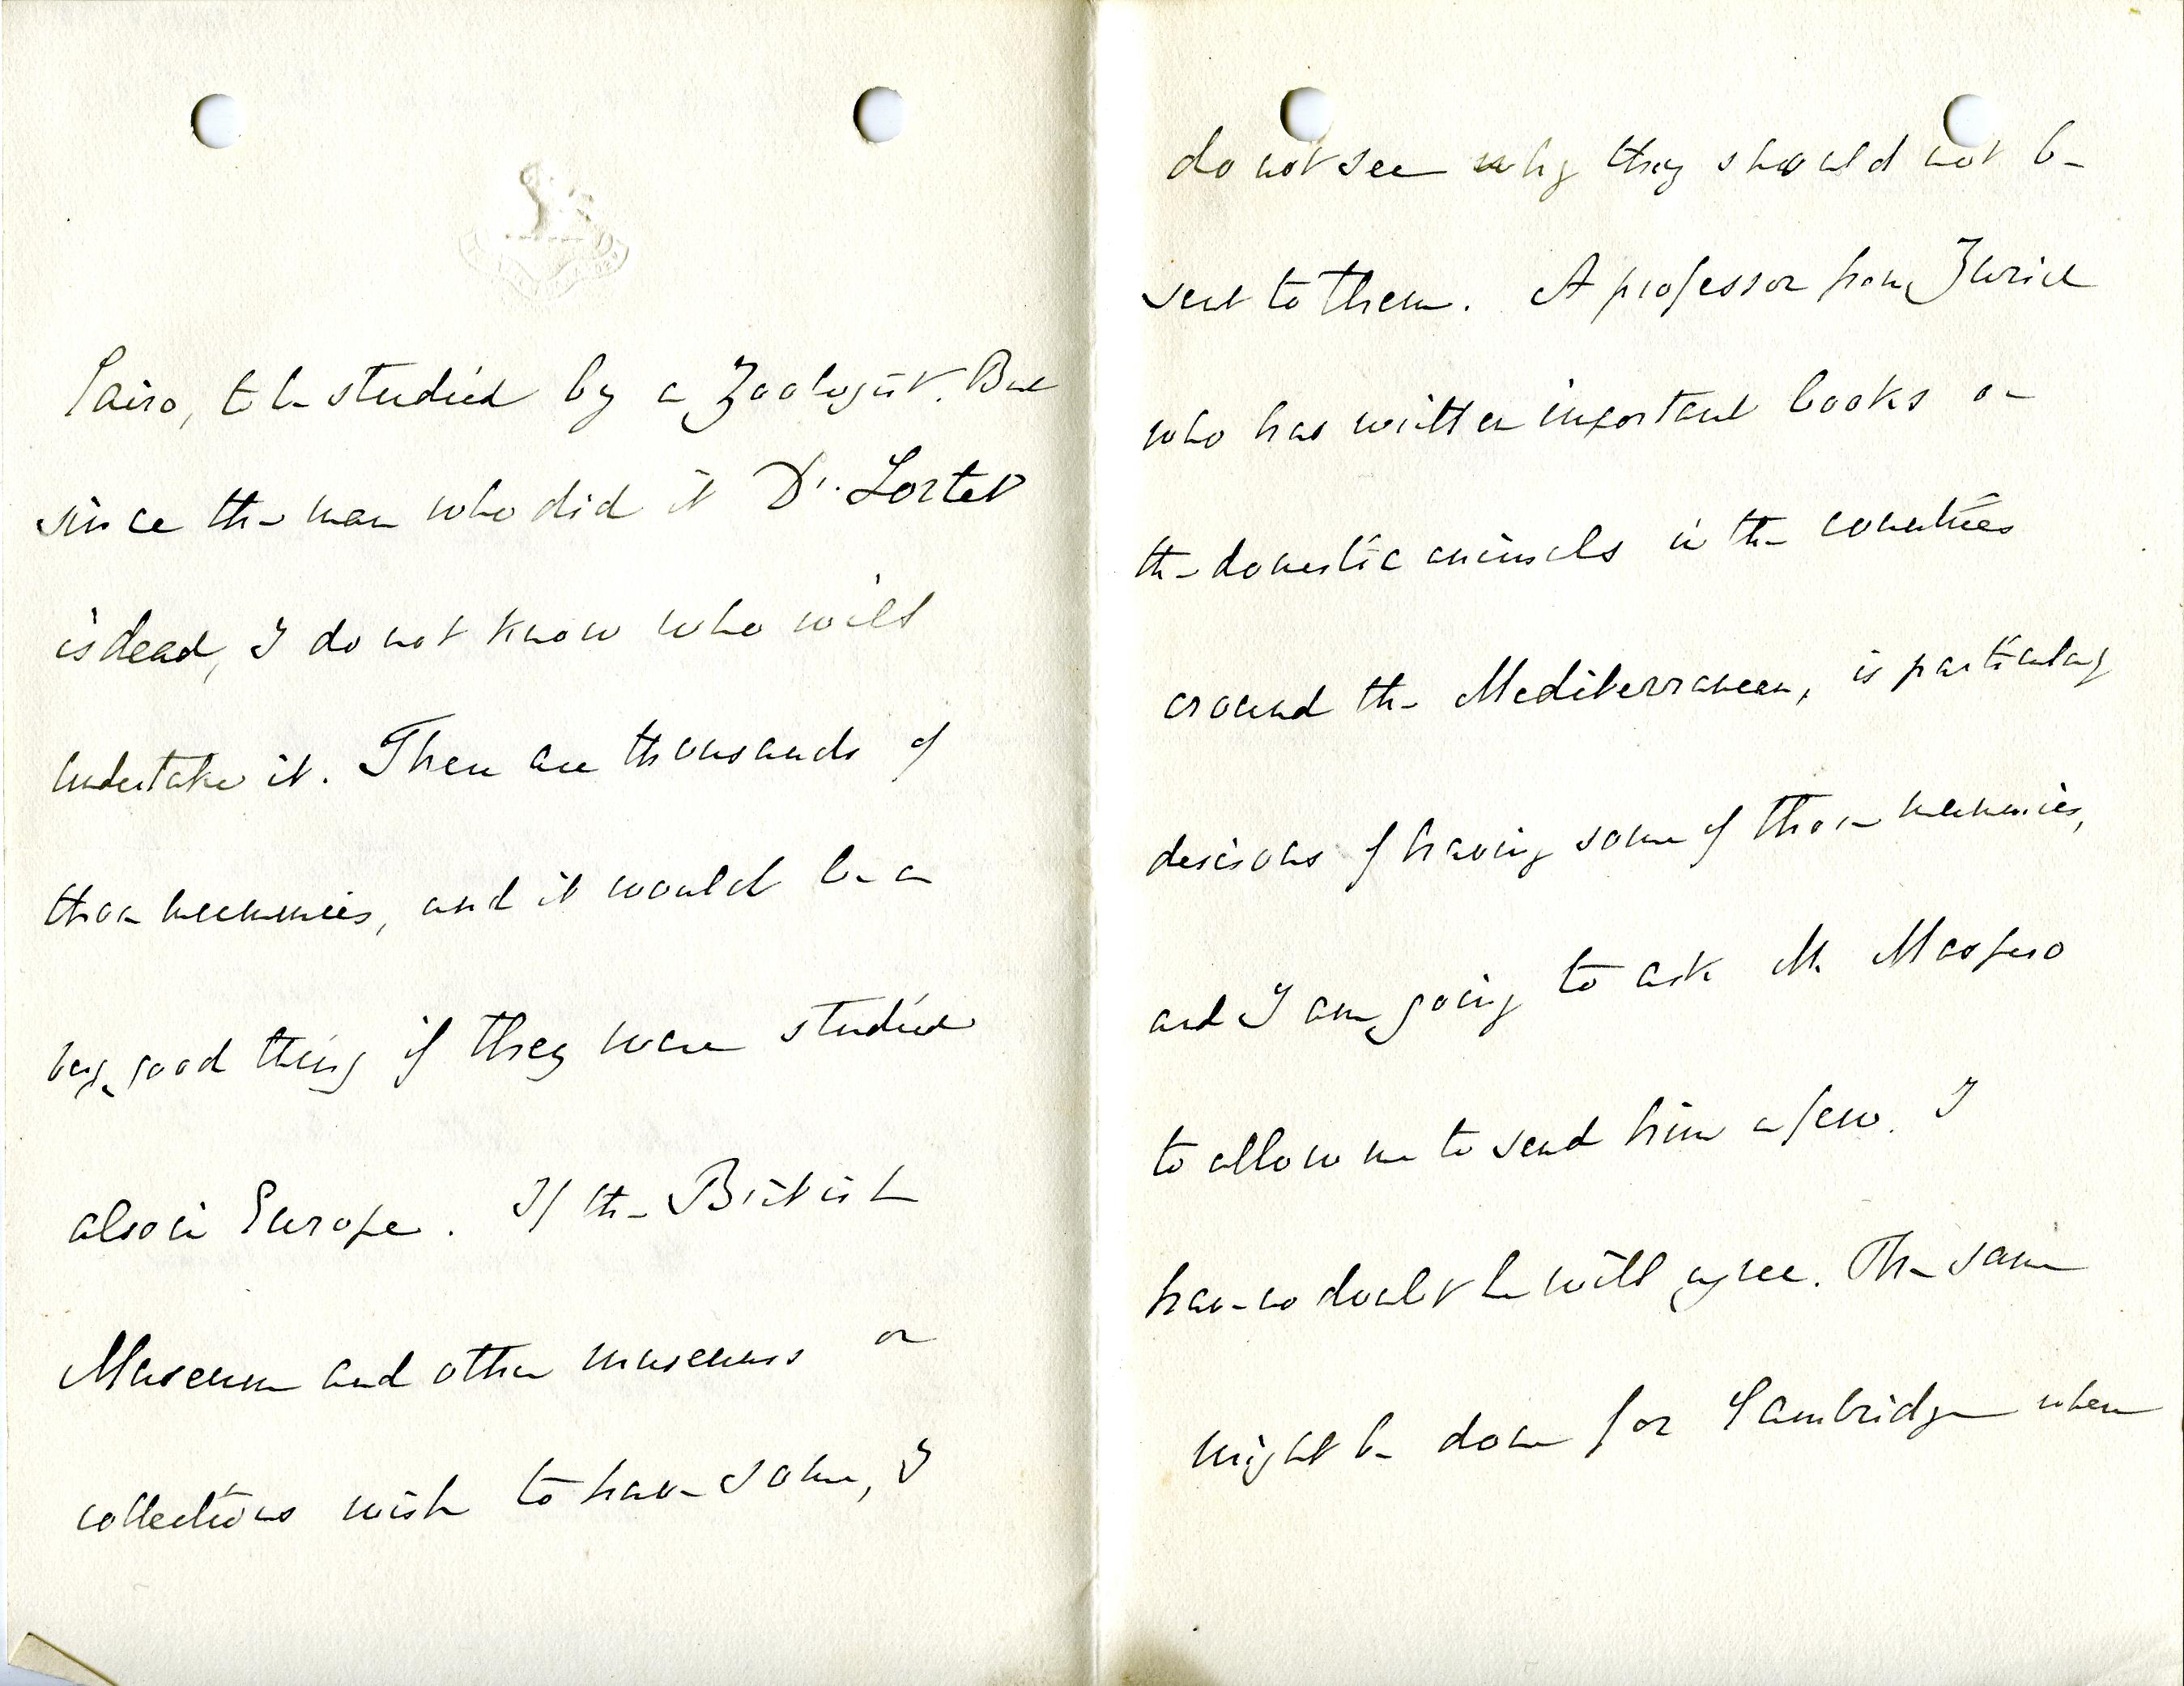 Cairo, to be studied by a Zoologist. But
since the man who did it Dr. Lortet
is dead, I do not know who will
undertake it. There are thousands of
those mummies, and it would be a
very good thing if they were studied
also in Europe. If the British
Museum and other museums or
collections wish to have some, I
do not see why they should not be
sent to them. A professor from Zurich
who has written important books on
the domestic animals in the countries
around the Mediterranean, is particularly
desirous of having some of those mummies,
and I am going to ask M. Maspero
to allow me to send him a few. I
have no doubt he will agree. The same
might be done for Cambridge when